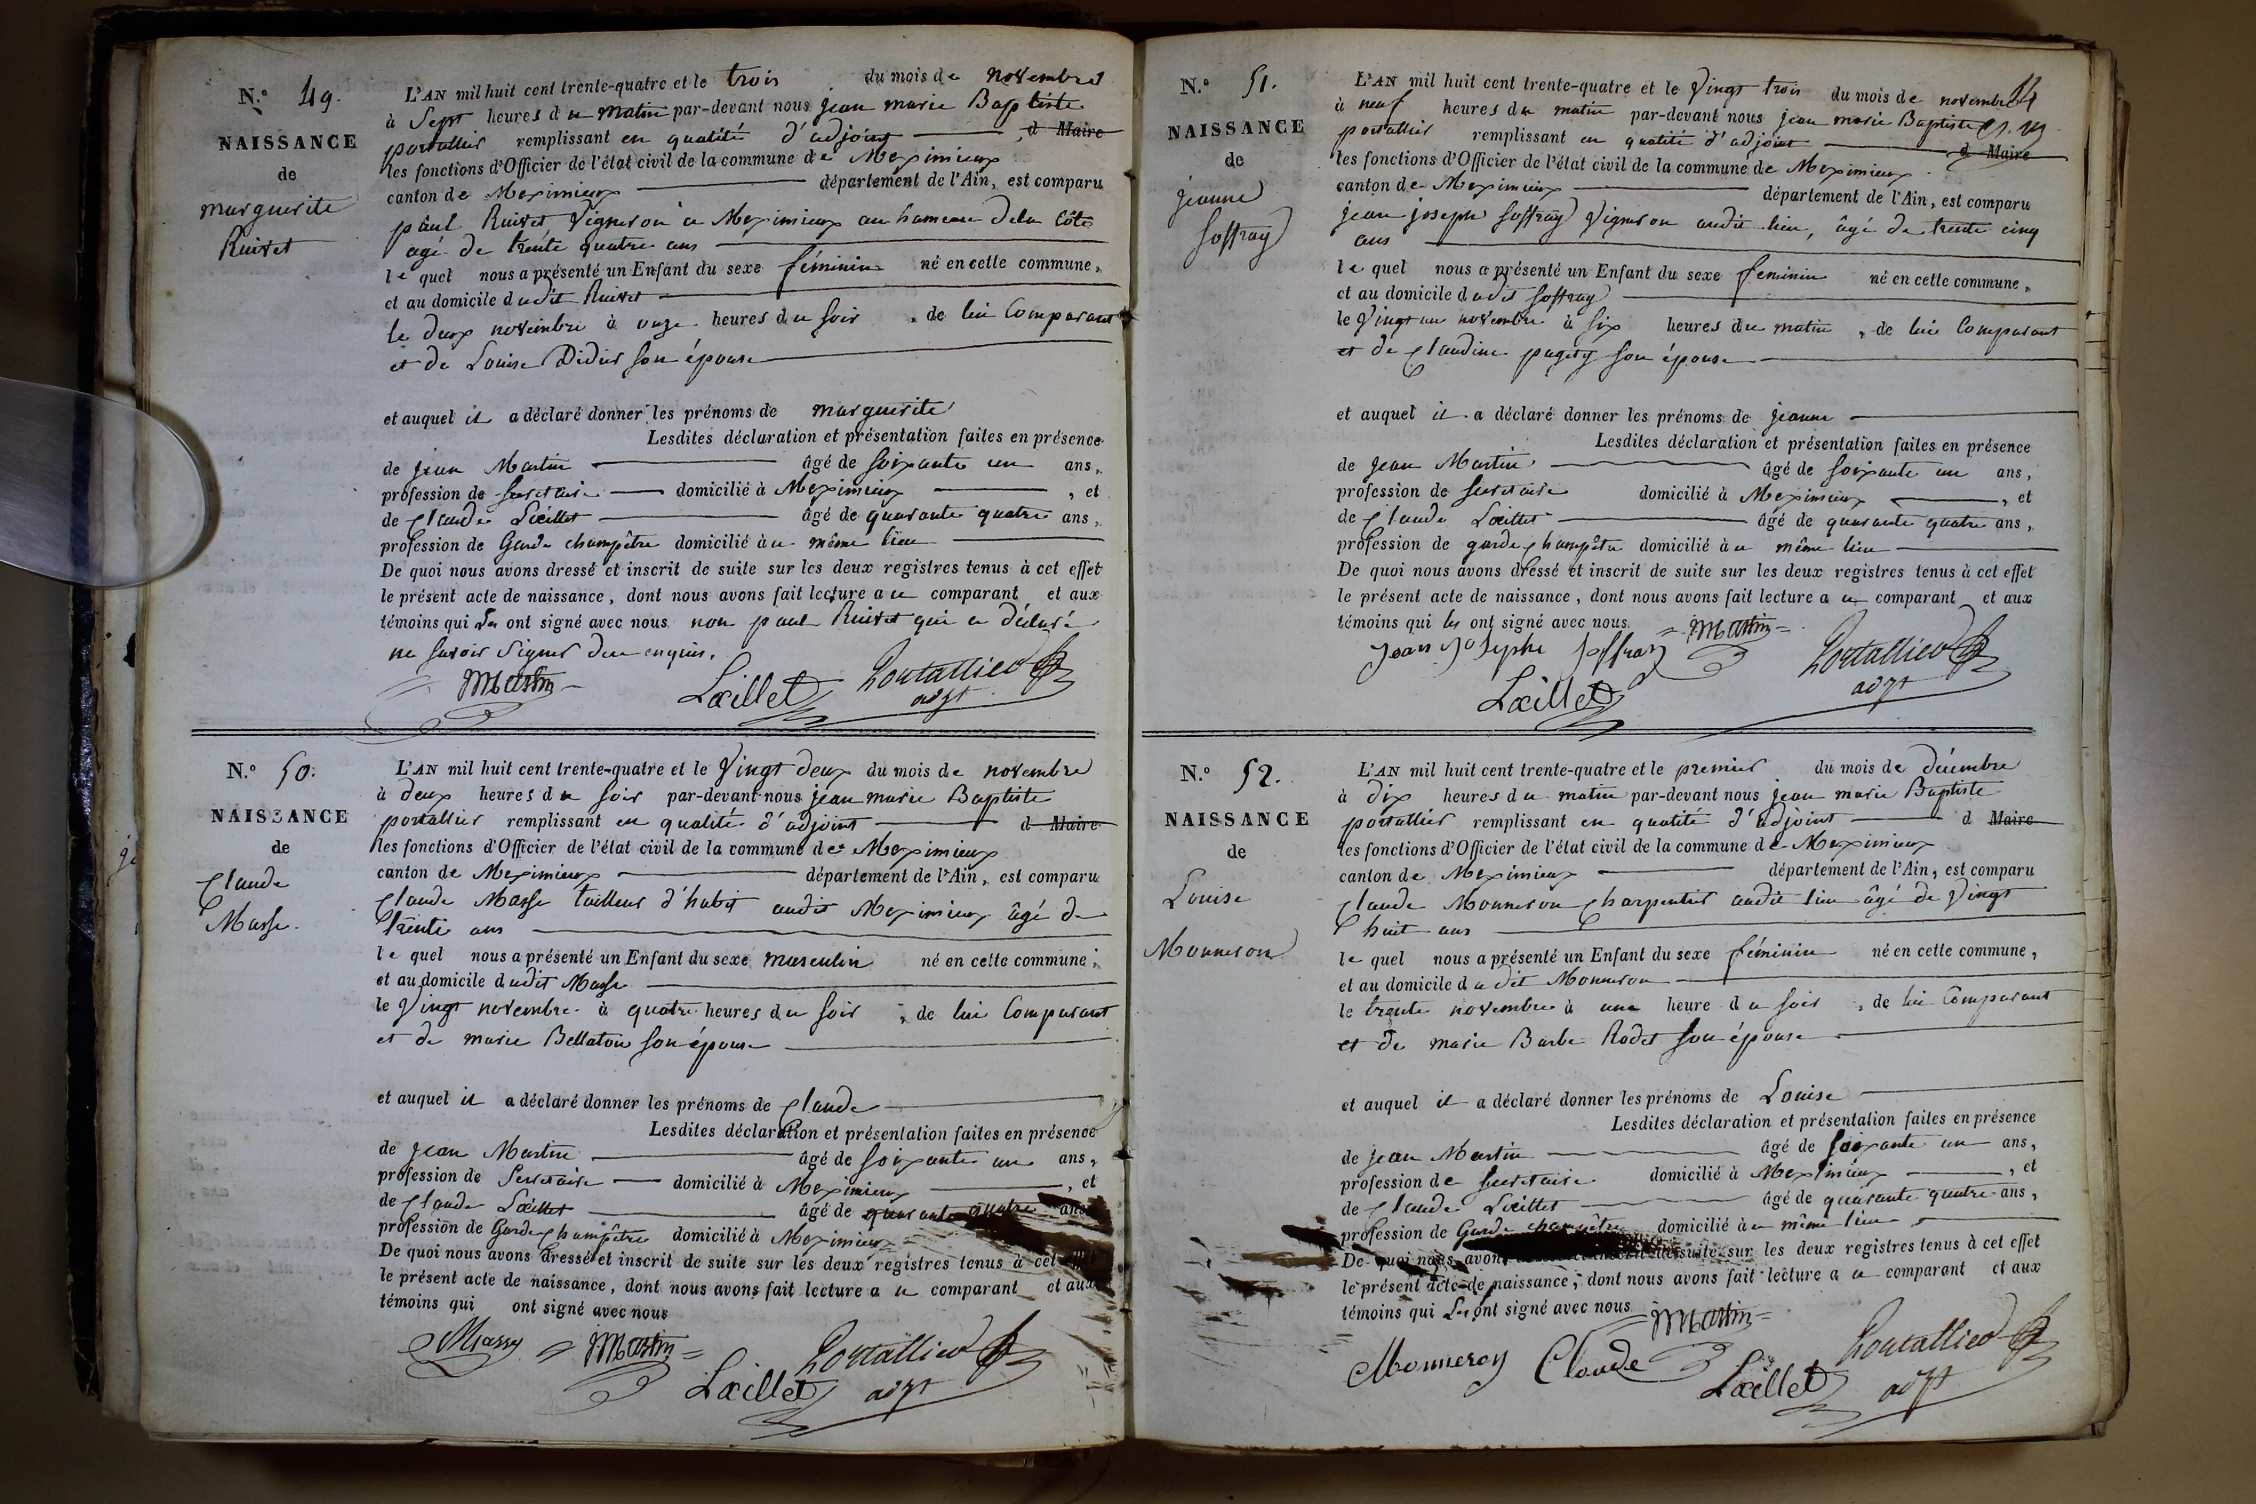 N.° 49.
NAISSANCE
de
marguerite
Ruivet
L'AN mil huit cent trente-quatre et le trois du mois de novembre
à Sept heures du matin par-devant nous jean marie Baptiste
portallier remplissant en qualité d'adjoint d Maire
les fonctions d'Officier de l'état civil de la commune de Meximieux
canton de Meximieux département de l'Ain, est comparu
paul Ruivet Vigneron à Meximieux au hameau dela Côte
agé de trente quatre ans
lequel nous a présenté un Enfant du sexe féminin né en cette commune,
et au domicile dudit Ruivet
le deux novembre à onze heures du soir , de lui Comparant
et de Louise Didier son épouse
et auquel il a déclaré donner les prénoms de marguerite
Lesdites déclaration et présentation faites en présence
de jean Martin âgé de soixante un ans,
profession de secretaire domicilié à Meximieux , et
de Claude Lœillet âgé de quarante quatre ans,
profession de Garde champêtre domicilié au même lieu
De quoi nous avons dressé et inscrit de suite sur les deux registres tenus à cet effet
le présent acte de naissance, dont nous avons fait lecture au comparant et aux
témoins qui les ont signé avec nous non paul Ruivet qui a déclaré
ne savoir signer deu enquis.
Martin Lœillet Portallier
adjt
N.° 50.
NAISSANCE
de
Claude
Masse.
L'AN mil huit cent trente-quatre et le Vingt deux du mois de novembre
à deux heures du soir par-devant nous jean marie Baptiste
portallier remplissant en qualité d'adjoint d Maire
les fonctions d'Officier de l'état civil de la commune de Meximieux
canton de Meximieux département de l'Ain, est comparu
Claude Masse tailleur d'habit audit Meximieux âgé de
trente ans
lequel nous a présenté un Enfant du sexe masculin né en cette commune,
et au domicile dudit Masse
le Vingt novembre à quatre heures du soir , de lui Comparant
et de marie Bellaton son épouse
et auquel il a déclaré donner les prénoms de Claude
Lesdites déclaration et présentation faites en présence
de jean Martin âgé de soixante un ans,
profession de Secretaire domicilié à Meximieux , et
de Claude Lœillet âgé de quarante quatre ans
profession de Garde Champêtre domicilié à Meximieux
De quoi nous avons dressé et inscrit de suite sur les deux registres tenus à cet
le présent acte de naissance, dont nous avons fait lecture au comparant et aux
témoins qui ont signé avec nous
Massy Martin Lœillet Portallier
adjt
N.° 51.
NAISSANCE
de
jeanne
Joffray
L'AN mil huit cent trente-quatre et le Vingt trois du mois de novembre
à neuf heures du matin par-devant nous jean marie Baptiste
portallier remplissant en qualité d'adjoint d Maire
les fonctions d'Officier de l'état civil de la commune de Meximieux
canton de Meximieux département de l'Ain, est comparu
jean joseph Joffray Vigneron audit lieu, âgé de trente cinq
ans
lequel nous a présenté un Enfant du sexe feminin né en cette commune,
et au domicile dudit Joffray
le Vingt un novembre à six heures du matin , de lui Comparant
et de Claudine pagety son épouse
et auquel il a déclaré donner les prénoms de jeanne
Lesdites déclaration et présentation faites en présence
de jean Martin âgé de soixante un ans,
profession de secretaire domicilié à Meximieux , et
de Claude Lœillet âgé de quarante quatre ans,
profession de garde Champêtre domicilié au même lieu
De quoi nous avons dressé et inscrit de suite sur les deux registres tenus à cet effet
le présent acte de naissance, dont nous avons fait lecture au comparant et aux
témoins qui les ont signé avec nous.
Jean Josephe Joffray Martin Portallier
Lœillet adjt
N.° 52.
NAISSANCE
de
Louise
Monneron
L'AN mil huit cent trente-quatre et le premier du mois de décembre
à dix heures du matin par-devant nous jean marie Baptiste
portallier remplissant en qualité d'adjoint d Maire
les fonctions d'Officier de l'état civil de la commune de Meximieux
canton de Meximieux département de l'Ain, est comparu
Claude Monneron Charpentier audit lieu âgé de Vingt
huit ans
lequel nous a présenté un Enfant du sexe féminin né en cette commune,
et au domicile dudit Monneron
le trente novembre à une heure du soir , de lui Comparant
et de marie Barbe Rodet son épouse
et auquel il a déclaré donner les prénoms de Louise
Lesdites déclaration et présentation faites en présence
de jean Martin âgé de soixante un ans,
profession de secretaire domicilié à Meximieux , et
de Claude Lœillet âgé de quarante quatre ans,
profession de Garde champêtre domicilié au même lieu
De quoi nous avons de suite sur les deux registres tenus à cet effet
le présent acte de naissance, dont nous avons fait lecture au comparant et aux
témoins qui les ont signé avec nous
Martin
Monneron Claude Lœillet Portallier
adjt